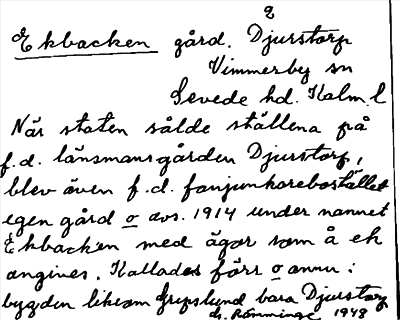 Ekbacken gård. Djurstorp
Vimmerby sn
Sevede hd. Kalm. l
När staten sålde ställena på
f.d. länsmansgården Djurstorp,
blev även f.d. fanjunkarebostället
egen gård o avs. 1914 under namnet
Ekbacken med ägor som å ek
angives. Kallades förr o ännu i
bygden liksom Gripslund bara Djurstorp
1948